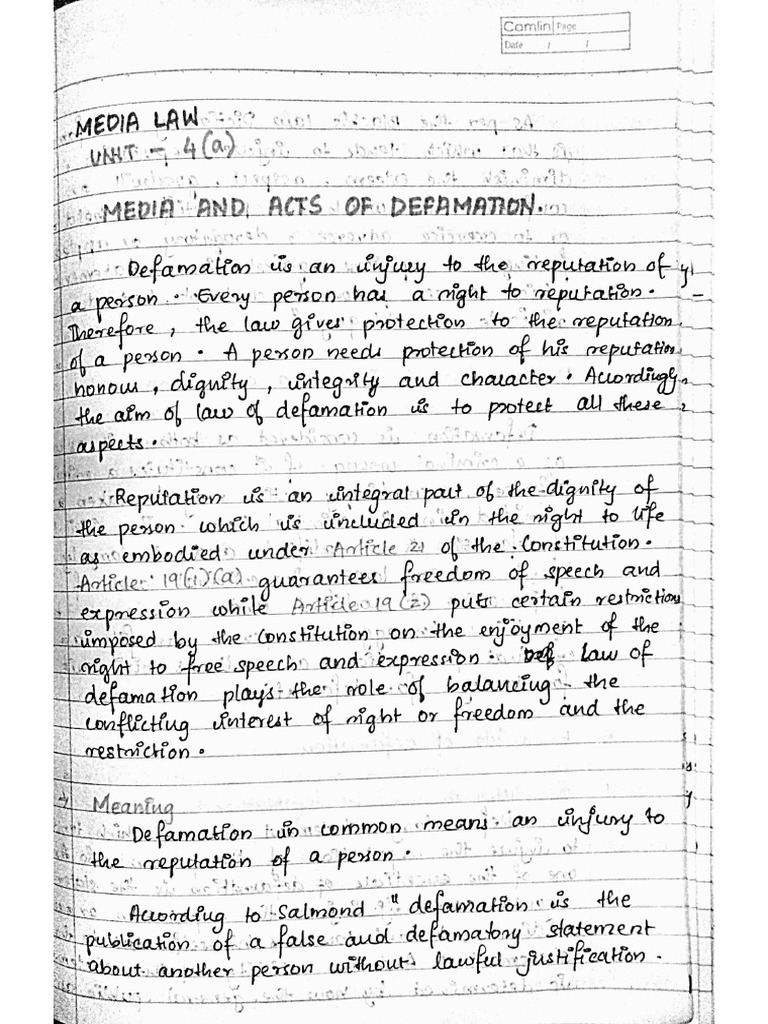 Camlin Page
Date / /
MEDIA LAW
UNIT - 4(a)
MEDIA AND ACTS OF DEFAMATION.
Defamation is an injury to the reputation of
a person. Every person has a right to reputation.
Therefore, the law gives protection to the reputation
of a person. A person needs protection of his reputation
honour, dignity, integrity and character. Accordingly,
the aim of law of defamation is to protect all these
aspects.
Reputation is an integral part of the dignity of
the person which is included in the right to life
as embodied under Article 21 of the Constitution.
Article 19(1)(a) guarantees freedom of speech and
expression while Article 19(2) puts certain restrictions
imposed by the Constitution on the enjoyment of the
right to free speech and expression. Law of
defamation plays the role of balancing the
conflicting interest of right or freedom and the
restriction.
→ Meaning
Defamation in common means an injury to
the reputation of a person.
According to Salmond "defamation is the
publication of a false and defamatory statement
about another person without lawful justification.